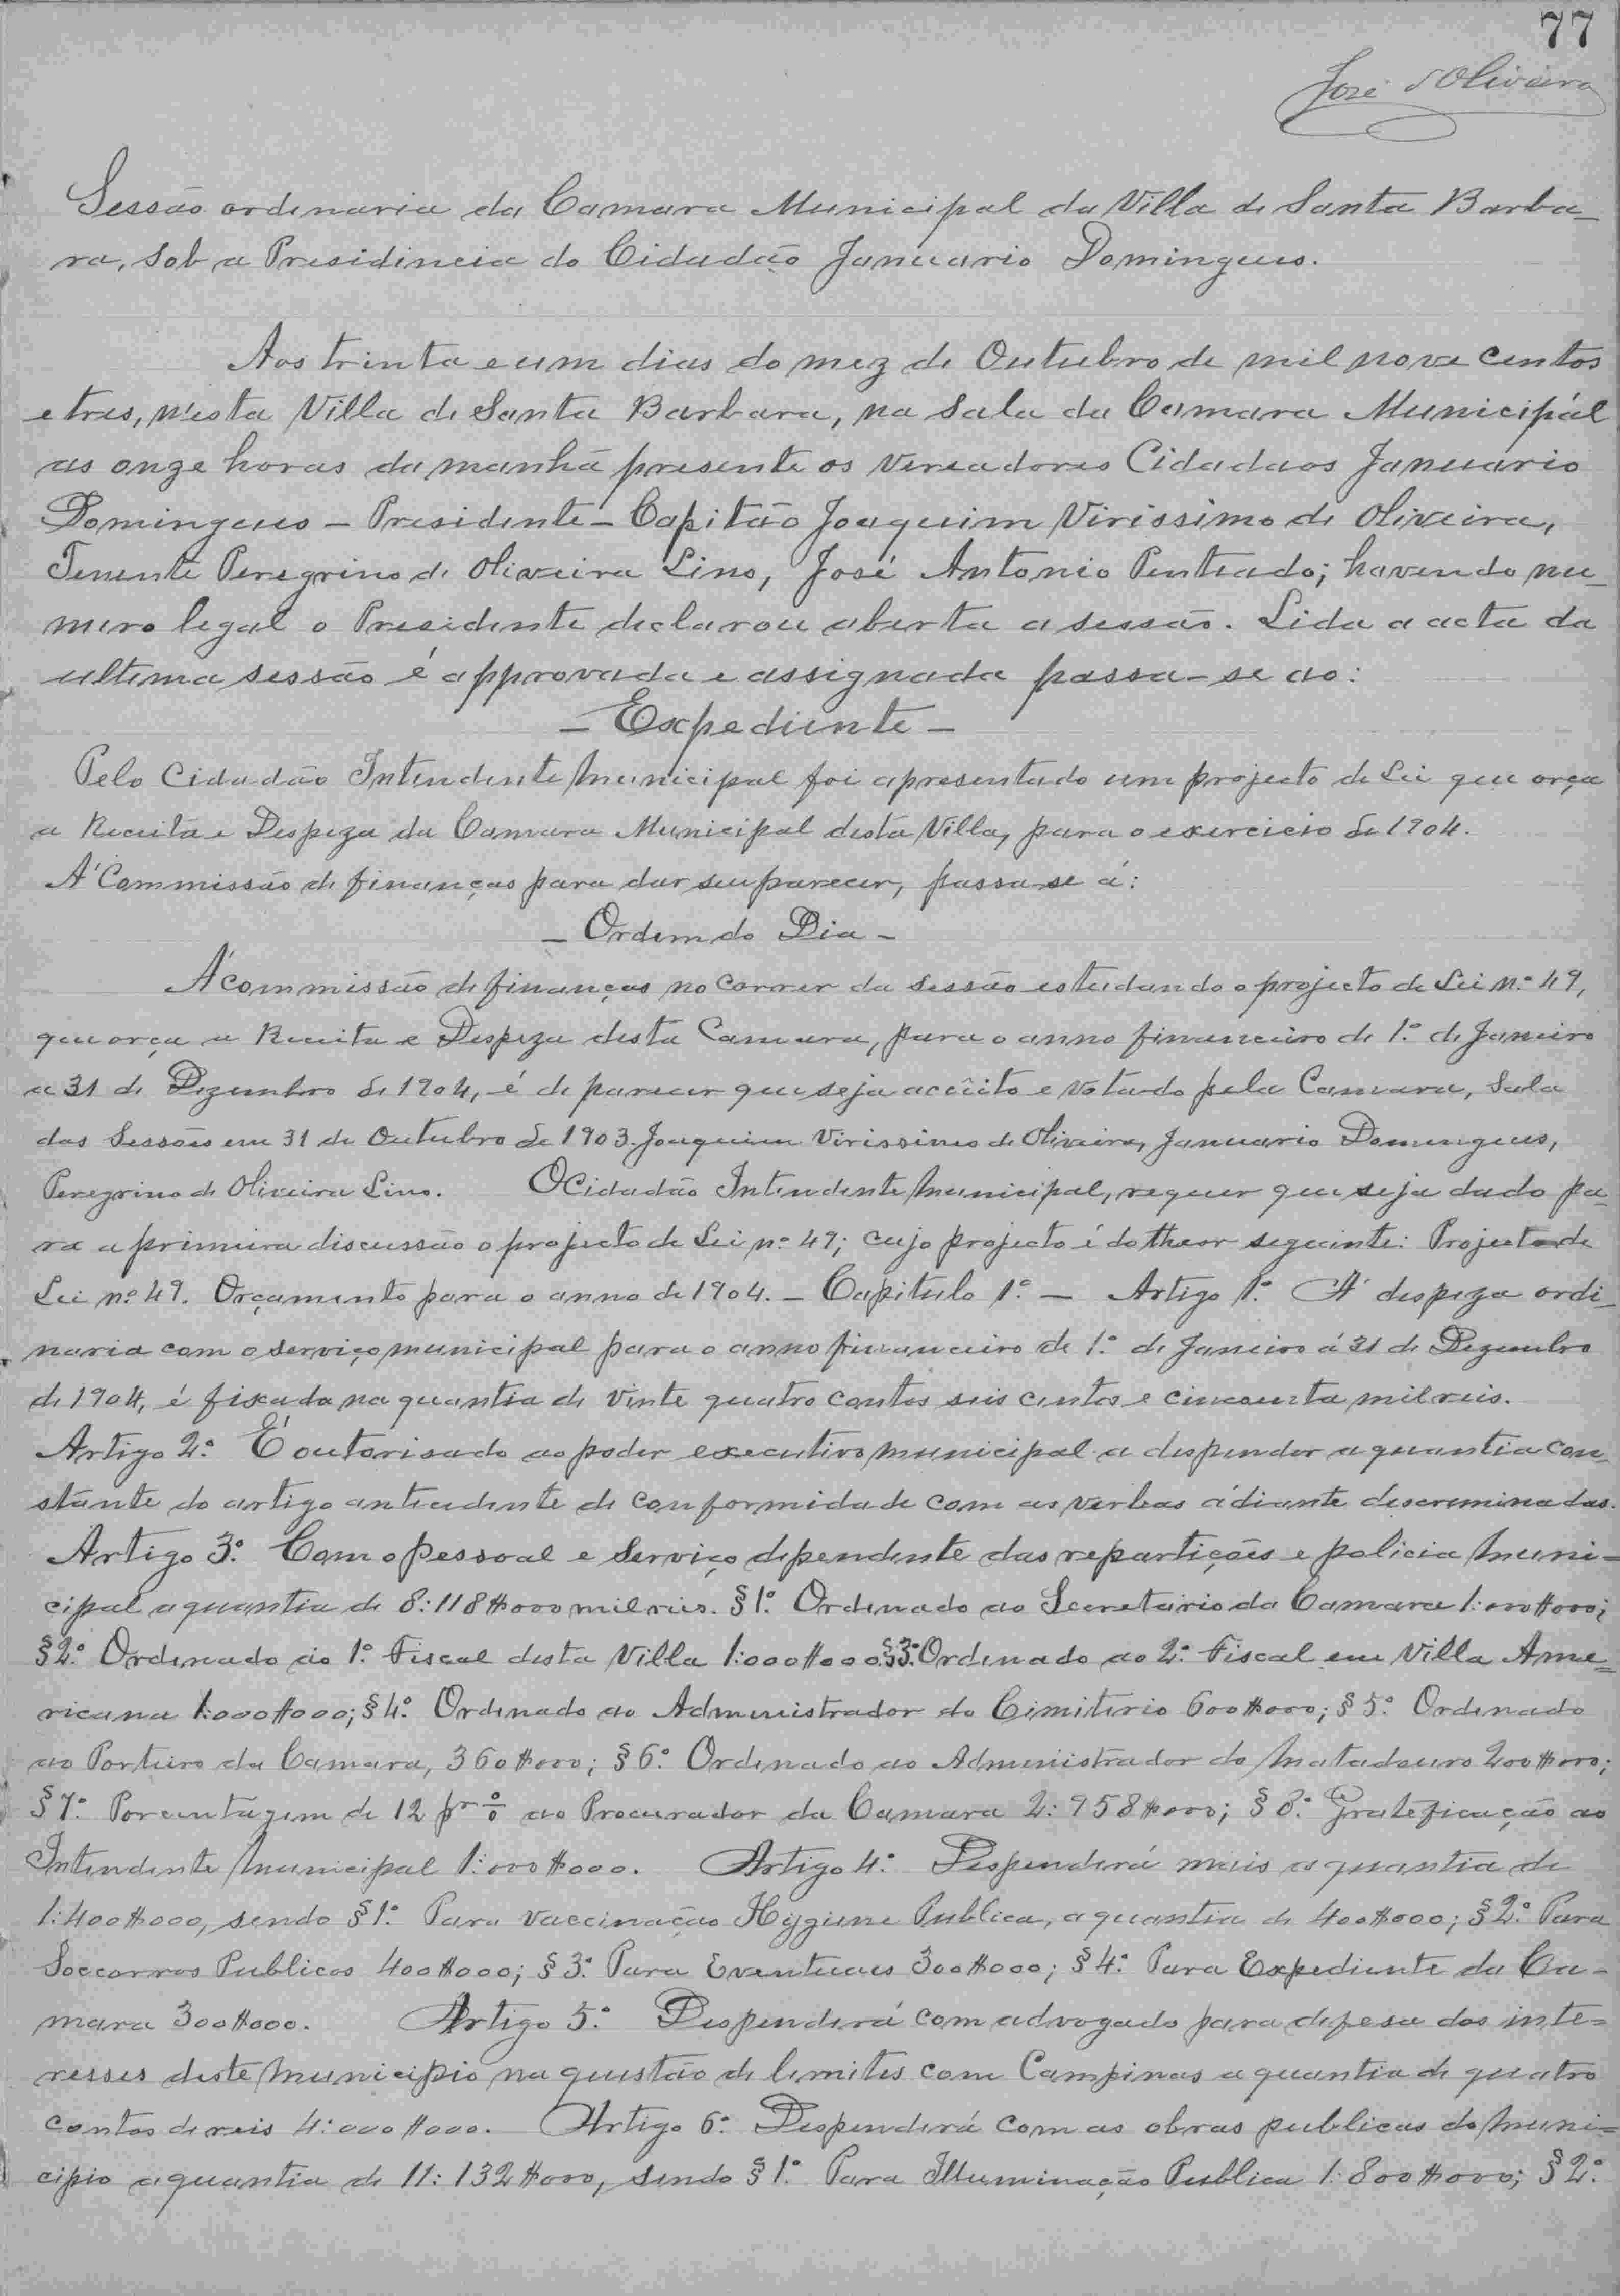 77
José d'Oliveira
Sessão ordinaria da Camara Municipal da Villa de Santa Barba-
ra, sob a Presidincia do Cidadão Januario Domingues.
Aos trinta e um dias do mez de Outubro de mil nove centos
e tres, n'esta Villa de Santa Barbara, na sala da Camara Municipal
as onze horas da manhã presente os vereadores Cidadaos Januario
Domingues - Presidente - Capitão Joaquim Virissimo de Oliveira,
Tenente Peregrino de Oliveira Lino, José Antonio Penteado; havendo nu-
mero legal o Presidente declarou aberta a sessão. Lida a acta da
ultima sessão é approvada e assignada passa-se ao:
- Expediente -
Pelo Cidadão Intendente Municipal foi apresentado um projecto de Lei que orça
a Receita e Despeza da Camara Municipal desta Villa, para o exercicio de 1904.
A' Commissão de finanças para dar seu parecer, passa-se á:
- Ordem do Dia -
A' commissão de finanças no correr da sessão estudando o projecto de Lei n.º 49,
que orça a Receita e Despeza desta Camara, para o anno financeiro de 1.º de Janeiro
a 31 de Dezembro de 1904, é de parecer que seja acceito e votado pela Camara, Sala
das Sessões em 31 de Outubro de 1903. Joaquim Virissimo de Oliveira, Januario Domingues,
Peregrino de Oliveira Lino. O Cidadão Intendente Municipal, requer que seja dado pa-
ra a primeira discussão o projecto de Lei n.º 49; cujo projecto é do theor seguinte: Projecto de
Lei n.º 49. Orçamento para o anno de 1904. - Capitulo 1.º - Artigo 1.º A' despeza ordi-
naria com o serviço municipal para o anno financeiro de 1.º de Janeiro á 31 de Dezembro
de 1904, é fixada na quantia de vinte quatro contos seis centos e cincoenta mil reis.
Artigo 2.º É outorisado ao poder executivo municipal a despender a quantia con-
stante do artigo antecedente de conformidade com as verbas ádiante descreminadas.
Artigo 3.º Com o pessoal e serviço dependente das repartições e policia Muni=
cipal a quantia de 8:118$000 mil reis. § 1.º Ordenado ao Secretario da Camara 1:000$000;
§ 2.º Ordenado ao 1.º Fiscal desta Villa 1:000$000. § 3.º Ordenado ao 2.º Fiscal em Villa Ame=
ricana 1:000$000; § 4.º Ordenado ao Administrador do Cimiterio 600$000; § 5.º Ordenado
ao Porteiro da Camara, 360$000; § 6.º Ordenado ao Administrador do Matadouro 200$000;
§ 7.º Porcentagem de 12 pr % ao Procurador da Camara 2:958$000; § 8.º Gratificação ao
Intendente Municipal 1:000$000. Artigo 4.º Despenderá mais a quantia de
1:400$000, sendo § 1.º Para vaccinação Hygiene Publica, a quantia de 400$000; § 2.º Para
Soccorros Publicos 400$000; § 3.º Para Eventuaes 300$000; § 4.º Para Expediente da Ca-
mara 300$000. Artigo 5.º Despenderá com advogado para defesa dos inte=
resses deste Municipio na questão de limites com Campinas a quantia de quatro
contos de reis 4:000$000. Artigo 6.º Despenderá com as obras publicas do Muni=
cipio a quantia de 11:132$000, sendo § 1.º Para Illuminação Publica 1:800$000; § 2.º